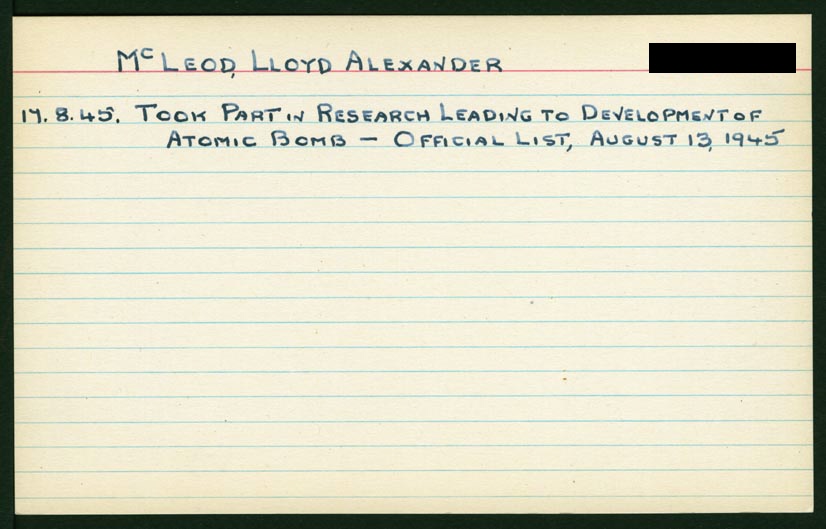 McLEOD, LLOYD ALEXANDER
17.8.45. TOOK PART IN RESEARCH LEADING TO DEVELOPMENT OF
ATOMIC BOMB — OFFICIAL LIST, AUGUST 13, 1945